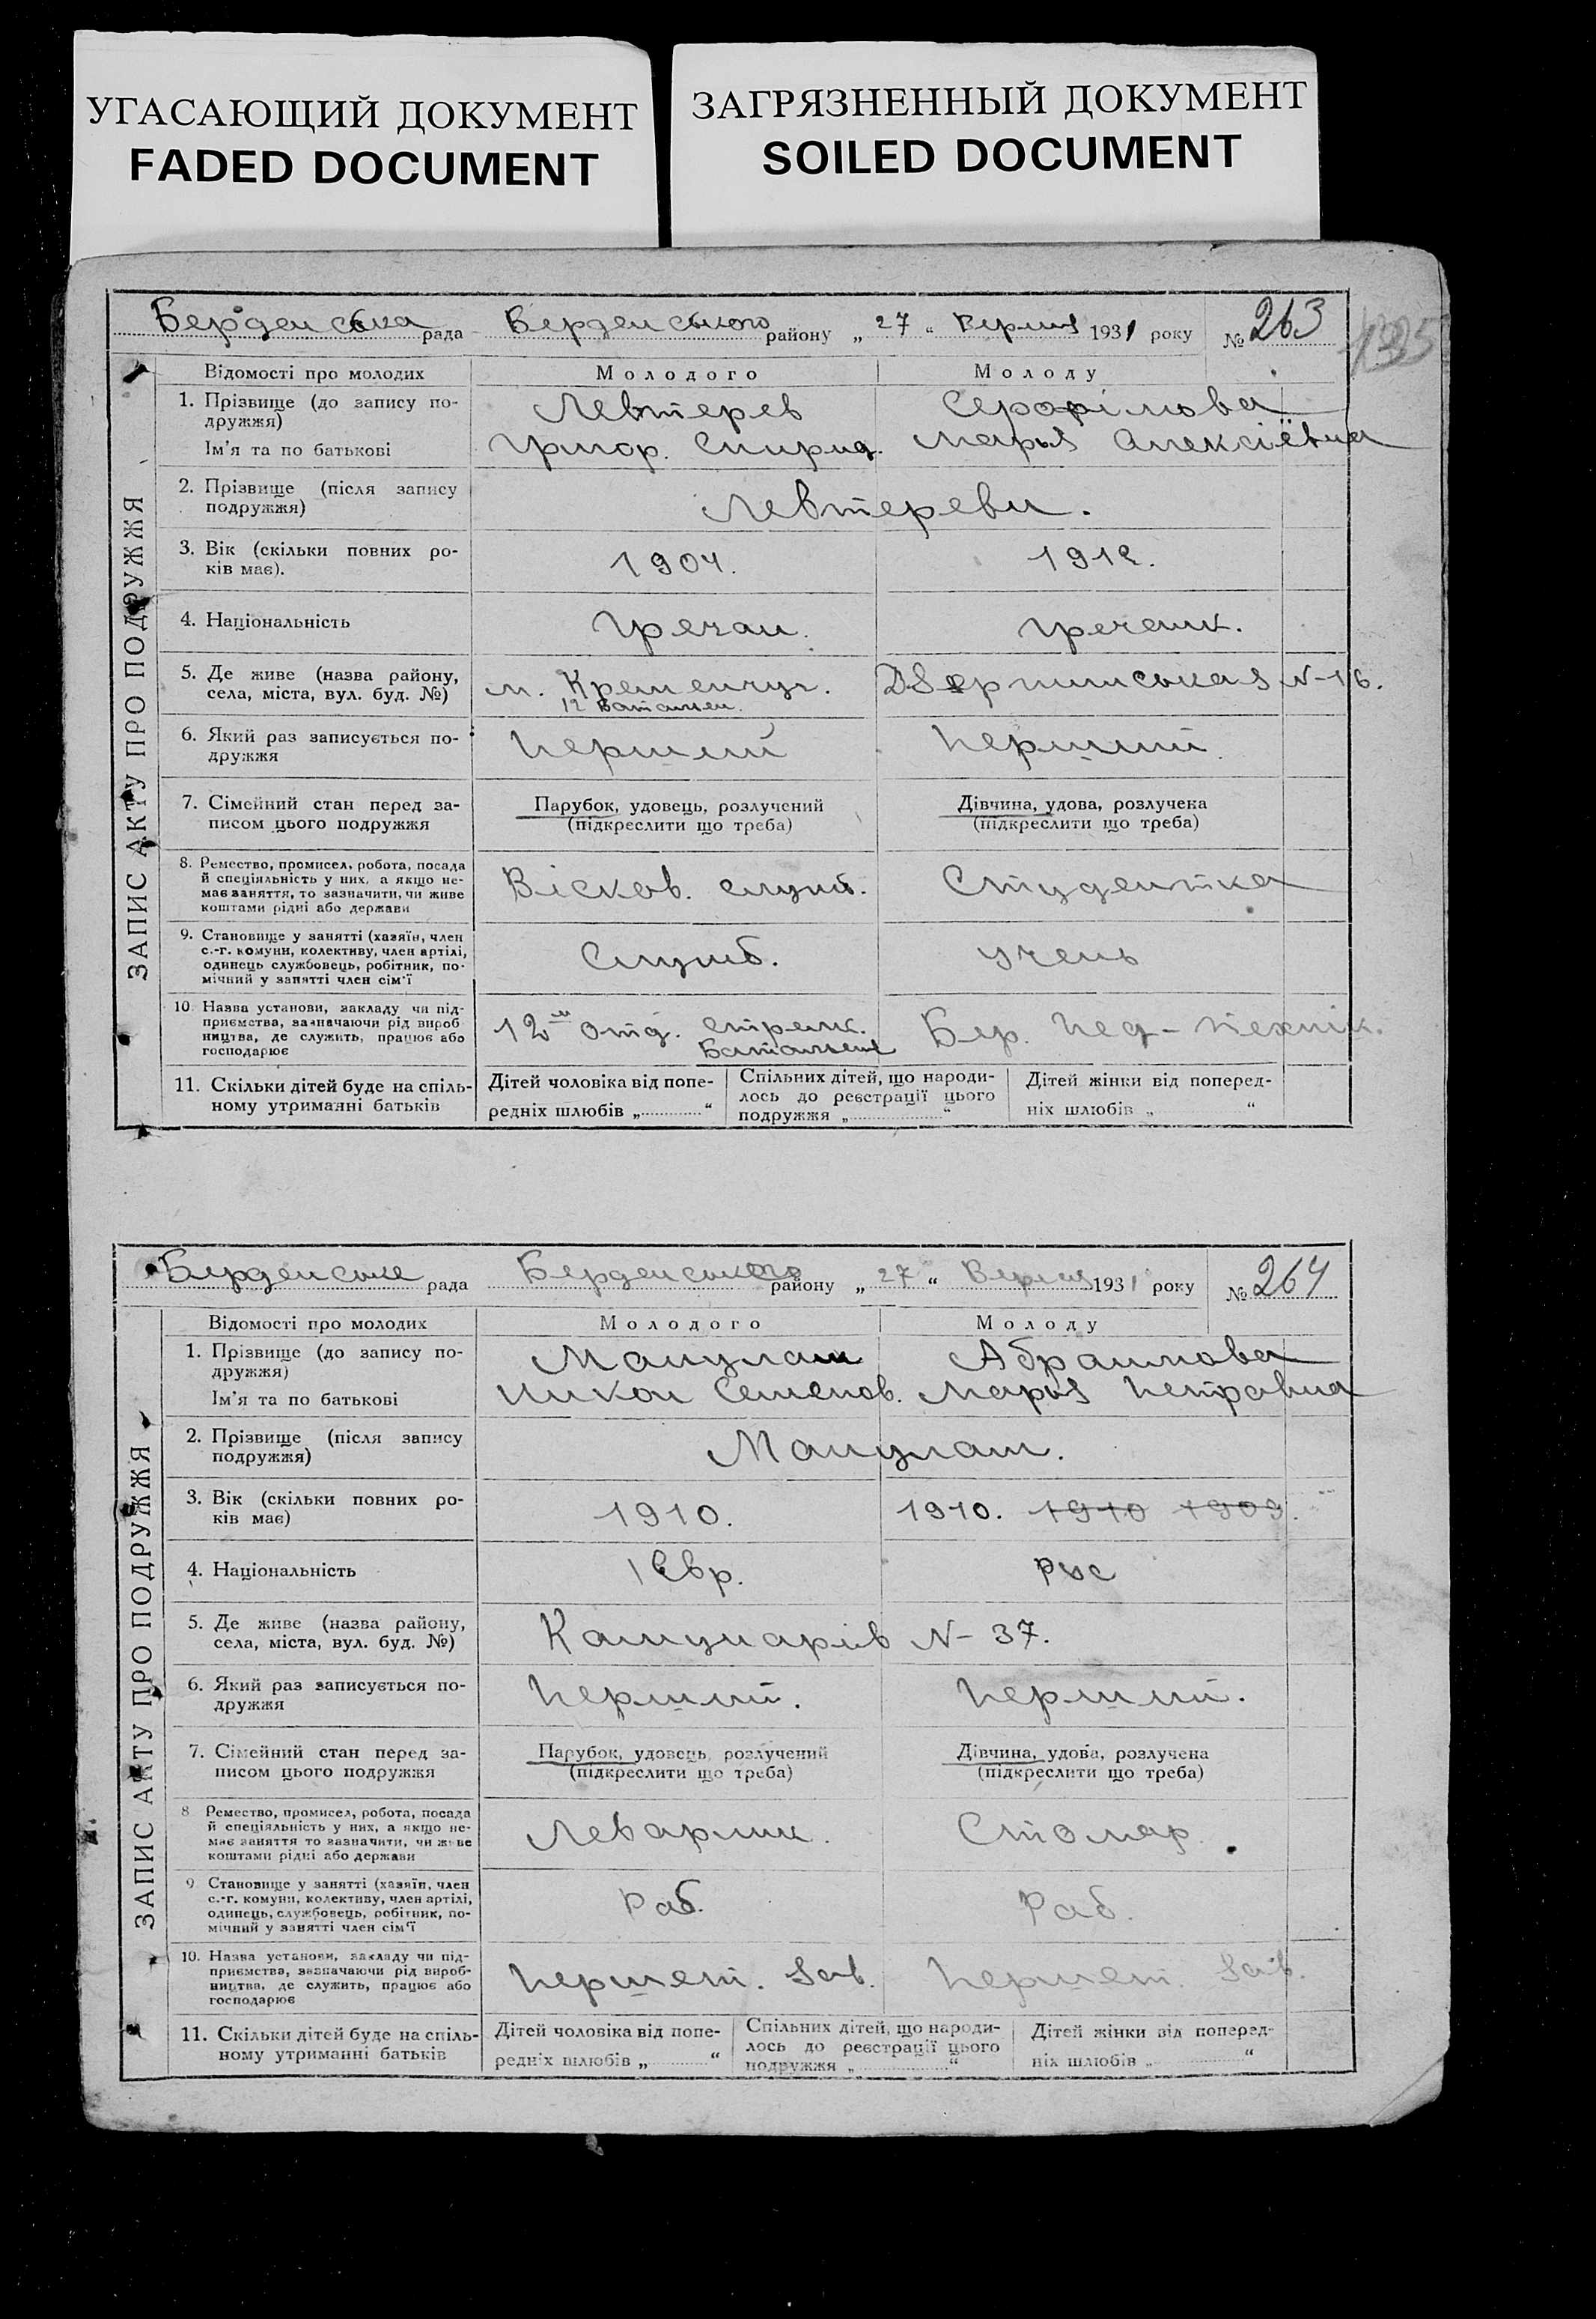 УГАСАЮЩИЙ ДОКУМЕНТ
FADED DOCUMENT
ЗАГРЯЗНЕННЫЙ ДОКУМЕНТ
SOILED DOCUMENT
ЗАПИС АКТУ ПРО ПОДРУЖЖЯ
Берденська рада Берденського району „ 27 “ Вересня 1931 року № 263
Відомості про молодих Молодого Молоду
1. Прізвище (до запису по-
дружжя) Левтерев Серафімова
Ім'я та по батькові Григор. Спирид. Марья Алексіёвна
2. Прізвище (після запису
подружжя) Левтереви.
3. Вік (скільки повних ро-
ків має). 1904. 1912.
4. Національність Гречан. Гречанк.
5. Де живе (назва району,
села, міста, вул. буд. №) м. Кременчуг. N-16.
12 Батальен.
6. Який раз записується по-
дружжя Перший Перший
7. Сімейний стан перед за-
писом цього подружжя
Парубок, удовець, розлучений
(підкреслити що треба)
Дівчина, удова, розлучена
(підкреслити що треба)
8. Ремество, промисел, робота, посада
й спеціяльність у них, а якщо не-
має заняття, то зазначити, чи живе
коштами рідні або держави
Вісков. служб. Студентка
9. Становище у занятті (хазяїн, член
с.-г. комуни, колективу, член артілі,
одинець службовець, робітник, по-
мічний у занятті член сім'ї
Служб. учень
10. Назва установи, закладу чи під-
приємства, зазначаючи рід вироб
ництва, де служить, працює або
господарює
12 отд. стрелк. Бер. Пед-технік.
Батальене
11. Скільки дітей буде на спіль-
ному утриманні батьків
Дітей чоловіка від попе-
редніх шлюбів „ “
Спільних дітей, що народи-
лось до реєстрації цього
подружжя „ “
Дітей жінки від поперед-
ніх шлюбів „ “
ЗАПИС АКТУ ПРО ПОДРУЖЖЯ
Берденське рада Берденського району „ 27 “ Вересня 1931 року № 264
Відомості про молодих Молодого Молоду
1. Прізвище (до запису по-
дружжя) Абрамова
Ім'я та по батькові Никон Семенов. Марья Петровна
2. Прізвище (після запису
подружжя)
3. Вік (скільки повних ро-
ків має) 1910. 1910. 1910 1909.
4. Національність Євр. Рус
5. Де живе (назва району,
села, міста, вул. буд. №) Комунарів N-37.
6. Який раз записується по-
дружжя Перший. Перший.
7. Сімейний стан перед за-
писом цього подружжя
Парубок, удовець, розлучений
(підкреслити що треба)
Дівчина, удова, розлучена
(підкреслити що треба)
8 Ремество, промисел, робота, посада
й спеціяльність у них, а якщо не-
має заняття то зазначити, чи живе
коштами рідні або держави
Столяр.
9 Становище у занятті (хазяїн, член
с.-г. комуни, колективу, член артілі,
одинець, службовець, робітник, по-
мічний у занятті член сім'ї
Раб. Раб.
10. Назва установи, закладу чи під-
приємства, зазначаючи рід вироб-
ництва, де служить, працює або
господарює
Першет. Зав. Першет. Зав.
11. Скільки дітей буде на спіль-
ному утриманні батьків
Дітей чоловіка від попе-
редніх шлюбів „ “
Спільних дітей, що народи-
лось до реєстрації цього
подружжя „ “
Дітей жінки від поперед-
ніх шлюбів „ “